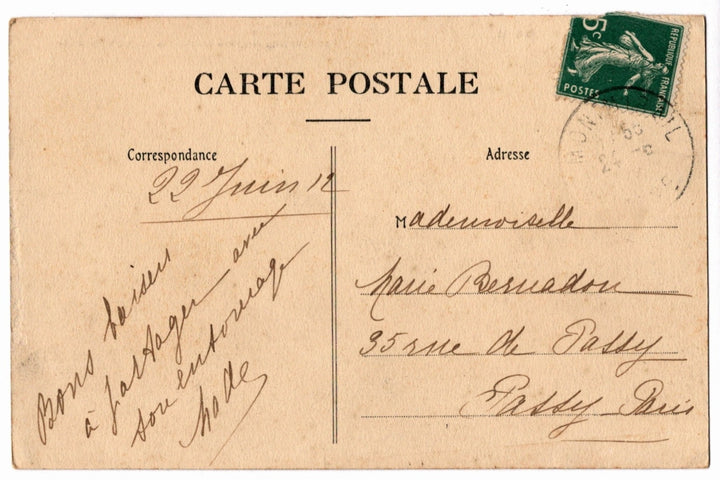 CARTE POSTALE
5c
RÉPUBLIQUE FRANÇAISE
POSTES
Correspondance
Adresse
22 Juin 12
Bons baisers
à partager avec
son entourage
Mademoiselle
Marie Bernadou
35 rue de Passy
Passy-Paris